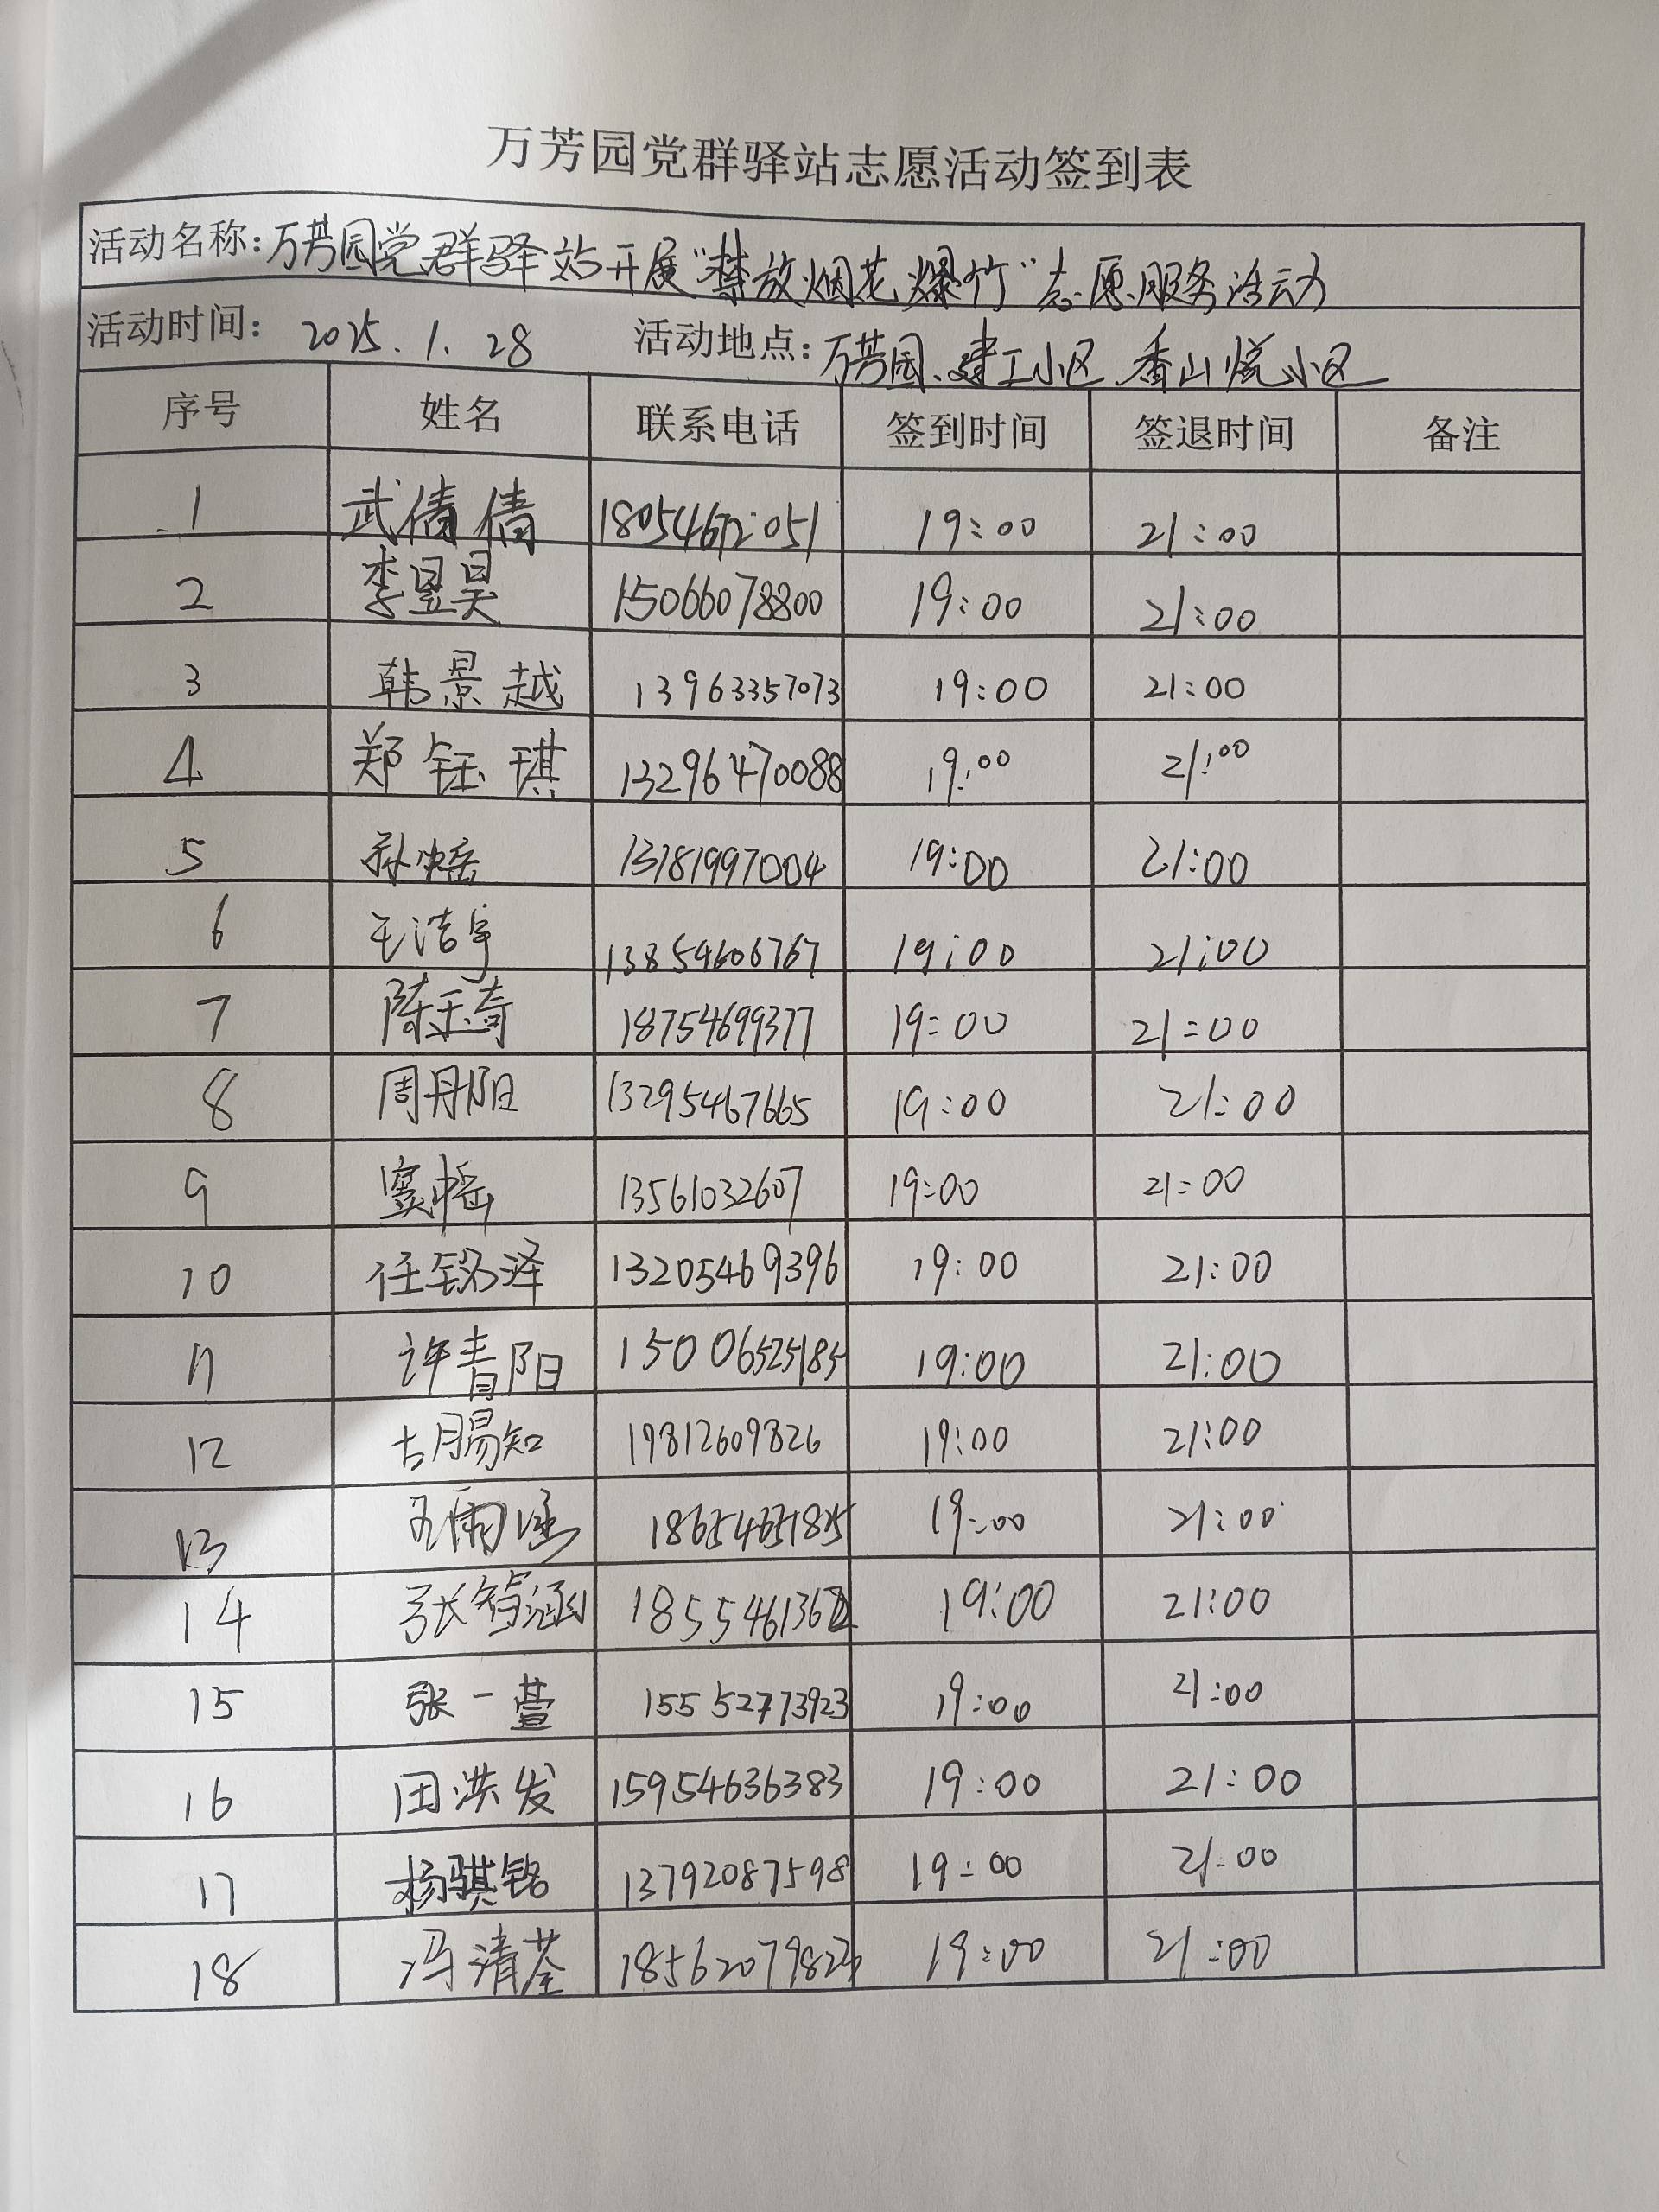 万芳园党群驿站志愿活动签到表
活动名称:万芳园党群驿站开展“禁放烟花爆竹”志愿服务活动
活动时间: 2025.1.28 活动地点:万芳园、建工小区、香山悦小区
序号 姓名 联系电话 签到时间 签退时间 备注
1 武倩倩 18054672051 19:00 21:00
2 李昱昊 15066078800 19:00 21:00
3 韩景越 13963357073 19:00 21:00
4 郑钰琪 13296470088 19:00 21:00
5 孙 13781997004 19:00 21:00
6 王浩宇 13854606767 19:00 21:00
7 陈玉奇 18754699377 19:00 21:00
8 周丹阳 13295467665 19:00 21:00
9 窦 13561032607 19:00 21:00
10 任铭泽 13205469396 19:00 21:00
11 许青阳 15006525185 19:00 21:00
12 19812609826 19:00 21:00
13 雨涵 19:00 21:00
14 张 涵 19:00 21:00
15 张一萱 15552773923 19:00 21:00
16 田洪发 15954636383 19:00 21:00
17 杨骐铭 13792087598 19:00 21:00
18 冯清荃 19:00 21:00